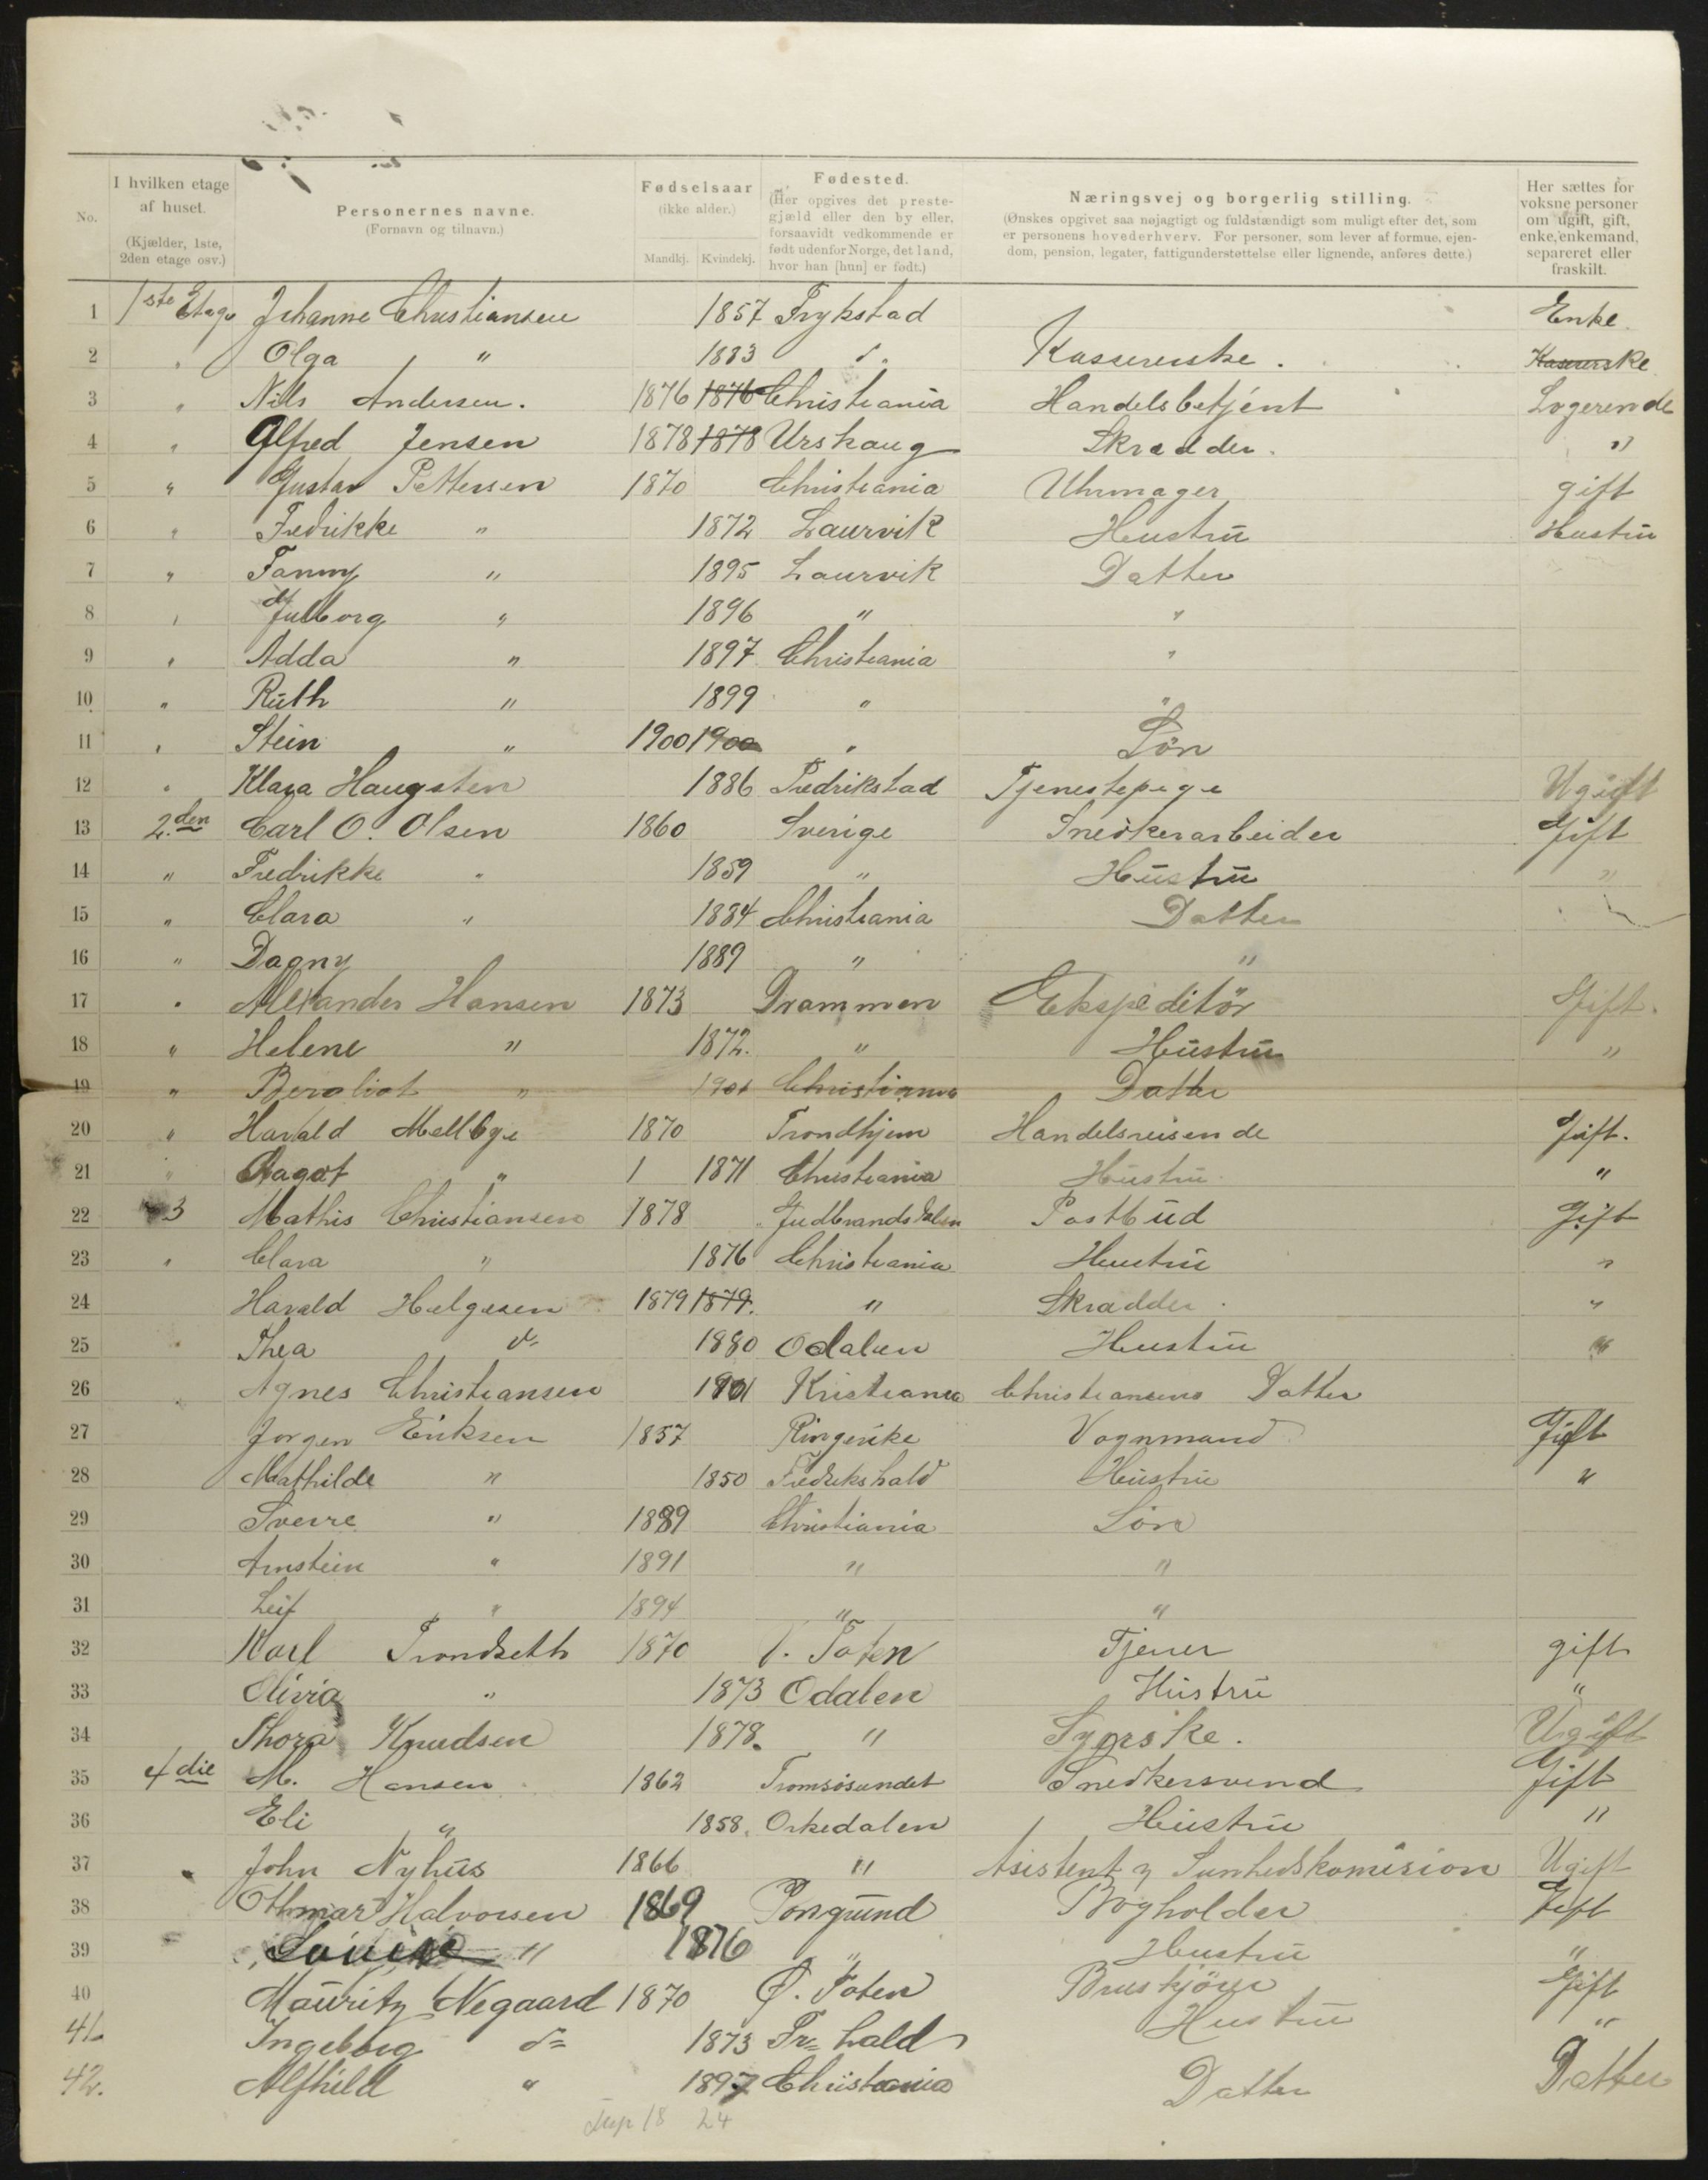 No.
I hvilken etage af huset.
(Kjælder, 1ste, 2den etage osv.)
Personernes navne.
(Fornavn og tilnavn.)
Fødselsaar
(ikke alder.)
Mandkj. Kvindekj.
Fødested.
(Her opgives det preste-
gjæld eller den by eller,
forsaavidt vedkommende er
født udenfor Norge, det land,
hvor han [hun] er født.)
Næringsvej og borgerlig stilling.
(Ønskes opgivet saa nøjagtigt og fuldstændigt som muligt efter det, som
er personens hovederhverv. For personer, som lever af formue, ejen-
dom, pension, legater, fattigunderstøttelse eller lignende, anføres dette.)
Her sættes for
voksne personer
om ugift, gift,
enke, enkemand,
separeret eller
fraskilt.
1 1ste Etage Johanne Christiansen 1857 Trykstad Enke
2 " Olga " 1883 d. Kassererske. Kasererske
3 " Nils Andersen. 1876 1876 Christiania Handelsbetjent Logerende
4 " Alfred Jensen 1878 1878 Urskaug Skrædder. "
5 " Gustav Pettersen 1870 Christiania Uhrmager gift
6 " Fredrikke " 1872 Laurvik Hustru Hustru
7 " Fanny " 1895 Laurvik Datter
8 " Julborg " 1896 " "
9 " Adda " 1897 Christiania "
10 " Ruth " 1899 " "
11 " Stein " 1900 1900 " Søn
12 " Klara Haugsten 1886 Fredrikstad Tjenestepige Ugift
13 2.den Carl O. Olsen 1860 Sverige Snedkerarbeider Gift
14 " Fredrikke " 1859 " Hustru "
15 " Clara " 1884 Christiania Datter
16 " Dagny 1889 " "
17 " Alexander Hansen 1873 Drammen Ekspeditör Gift.
18 " Helene " 1872. " Hustru "
19 " Bergliot " 1901 Christiania Datter
20 " Harald Mellbye 1870 Trondhjem Handelsreisende Gift.
21 " Aagot " 1 1871 Christiania Hustru "
22 3 Mathis Christiansen 1878 Gudbrandsdalen Postbud Gift
23 " Clara " 1876 Christiania Hustru "
24 Harald Helgesen 1879 1879. " Skrædder. "
25 Thea do 1880 Odalen Hustru "
26 Agnes Christiansen 1901 Kristiania Christiansens Datter
27 Jørgen Eriksen 1857 Ringerike Vognmand Gift
28 Mathilde " 1850 Fredrikshald Hustru "
29 Sverre " 1889 Christiania Søn
30 Arnstein " 1891 " "
31 Leif " 1894 " "
32 Karl Trondseth 1870 V. Toten Tjener gift
33 Olivia " 1873 Odalen Hustru "
34 Thora Knudsen 1878. " Syerske. Ugift
35 4die M. Hansen 1862 Tromsøsundet Snedkersvend Gift
36 Eli " 1858. Orkedalen Hustru "
37 John Nyhus 1866 " Asistent z Sunhedskomision Ugift
38 Othmar Halvorsen 1869 Porsgrund Bogholder Gift
39 Louise " 1876 " Hustru "
40 Mauritz Negaard 1870 Ø. Toten Bruskjører Gift
41. Ingeborg do 1873 Fr=hald Hustru "
42. Alfhild " 1897 Christania Datter Datter
18 24